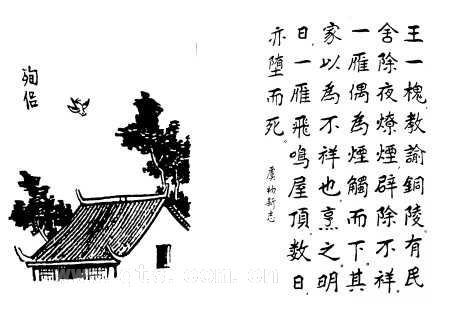 王一槐教諭銅陵有民
舍除夜燎煙辟除不祥
一雁偶為煙觸而下其
家以為不祥也烹之明
日一雁飛鳴屋頂數日
亦墮而死。
虞初新志
殉侶